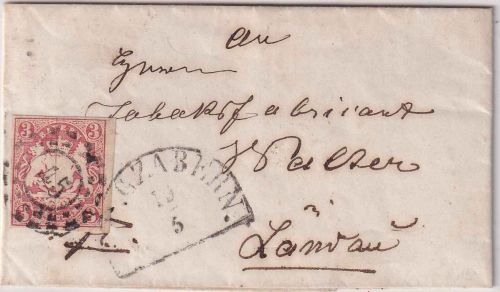 An
Herrn
Tabaksfabricant
Walter
Landau
3 3
RZABERN.
19
5